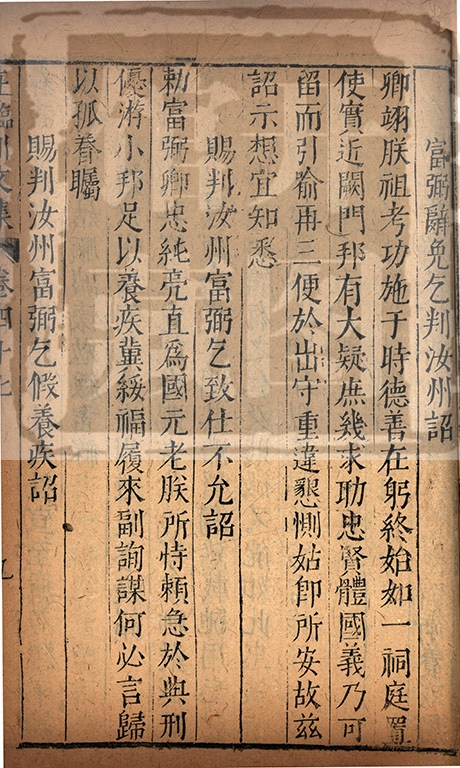 富弼辭免乞判汝州詔
卿翊朕祖考功施于時德善在躬終始如一祠庭置
使實近闕門邦有大疑庶幾求助忠賢體國義乃可
留而引喻再三便於出守重違懇惻姑卽所安故茲
詔示想宜知悉
賜判汝州富弼乞致仕不允詔
勑富弼卿忠純亮直爲國元老朕所恃賴急於典刑
優游小邦足以養疾冀綏福履來副詢謀何必言歸
以孤眷矚
賜判汝州富弼乞假養疾詔
王臨川文集 卷四十七 九